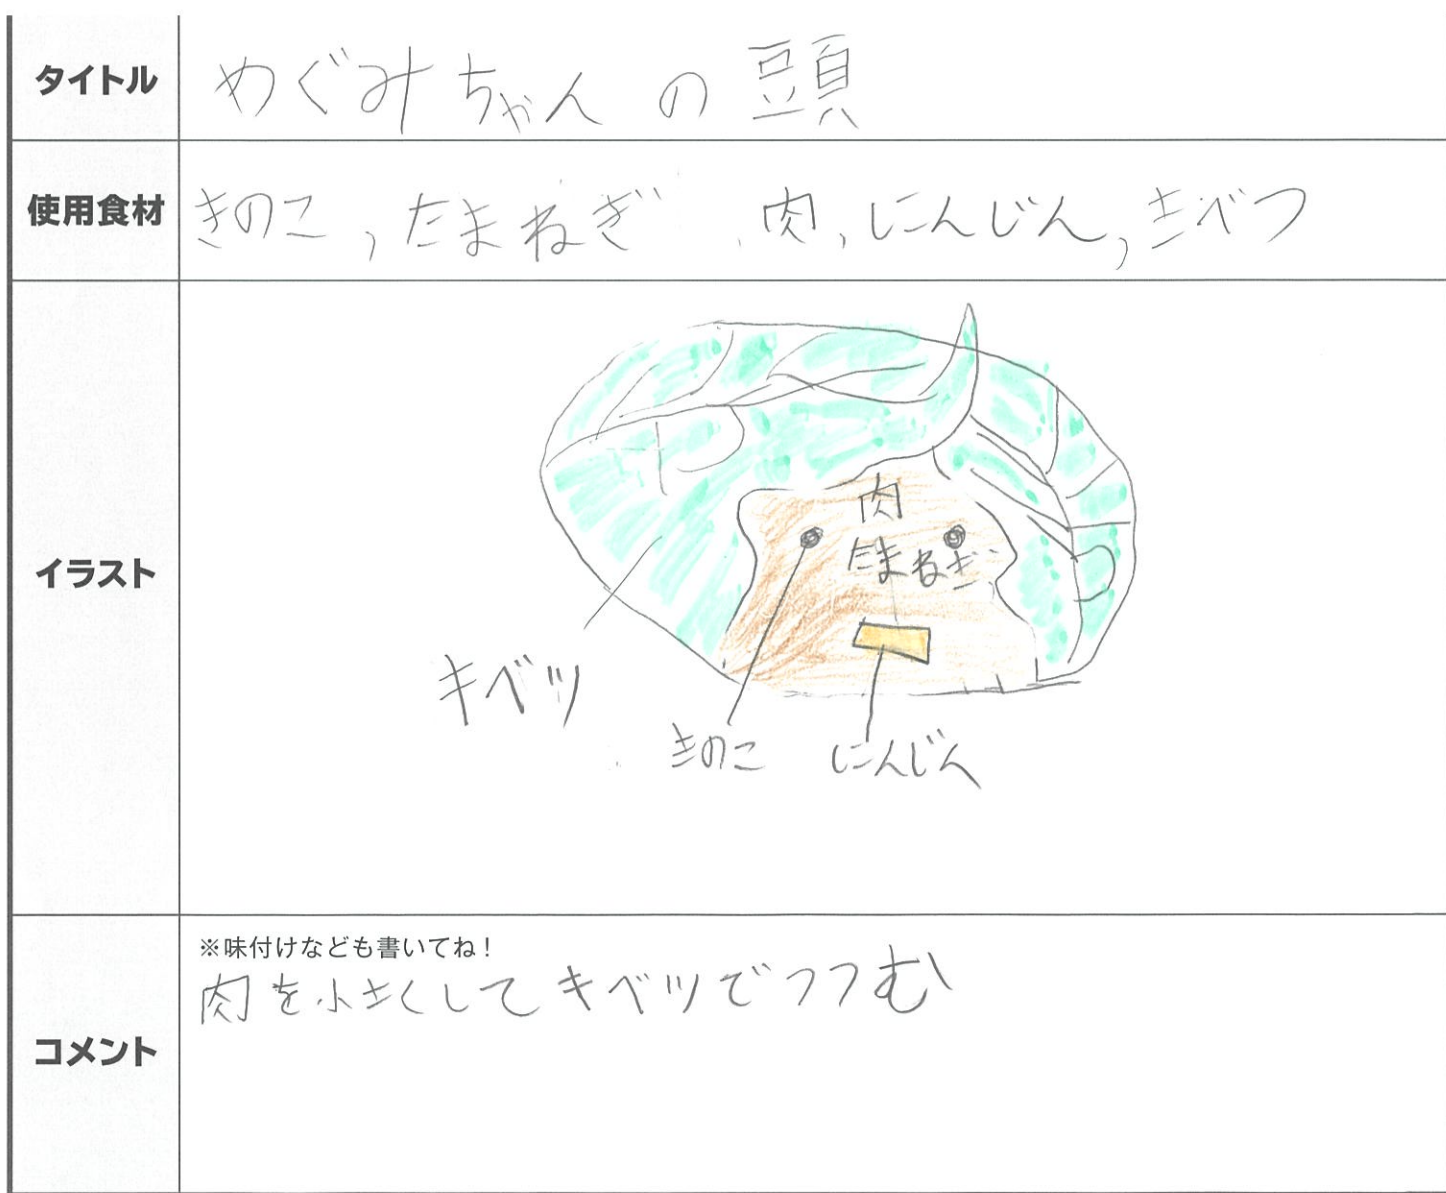 タイトル
めぐみちゃんの頭
使用食材
きのこ,たまねぎ、肉,にんじん,きべつ
イラスト
肉
たまねぎ
キベツ
きのこ
にんじん
コメント
※味付けなども書いてね!
肉を小さくしてキベツでつつむ